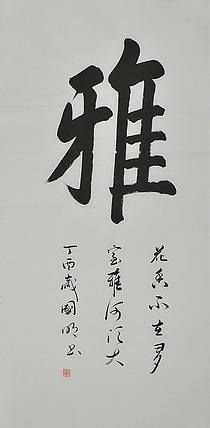 雅
花香不在多
室雅何须大
丁酉岁国明书